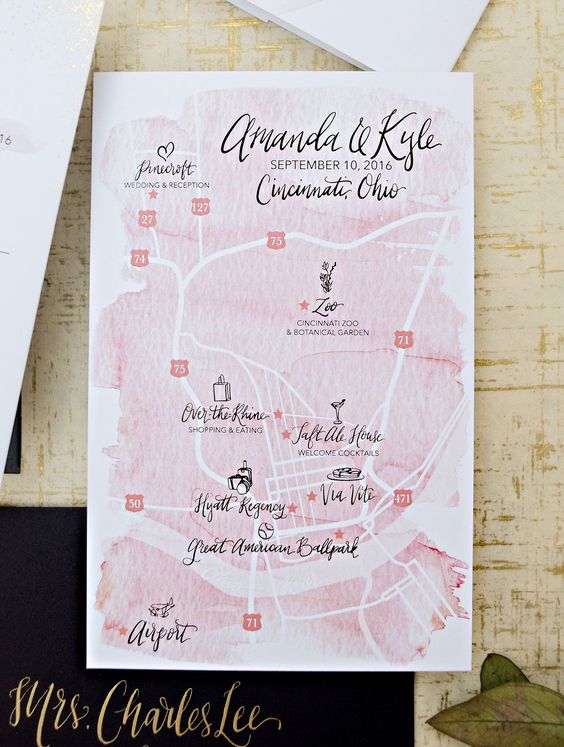 16
Amanda & Kyle
SEPTEMBER 10, 2016
Cincinnati, Ohio
Pinecroft
WEDDING & RECEPTION
27
127
74
75
Zoo
CINCINNATI ZOO
& BOTANICAL GARDEN
71
75
Over-the-Rhine
SHOPPING & EATING
Taft Ale House
WELCOME COCKTAILS
Hyatt Regency
Via Vite
50
471
Great American Ballpark
Airport
71
Mrs. Charles Lee